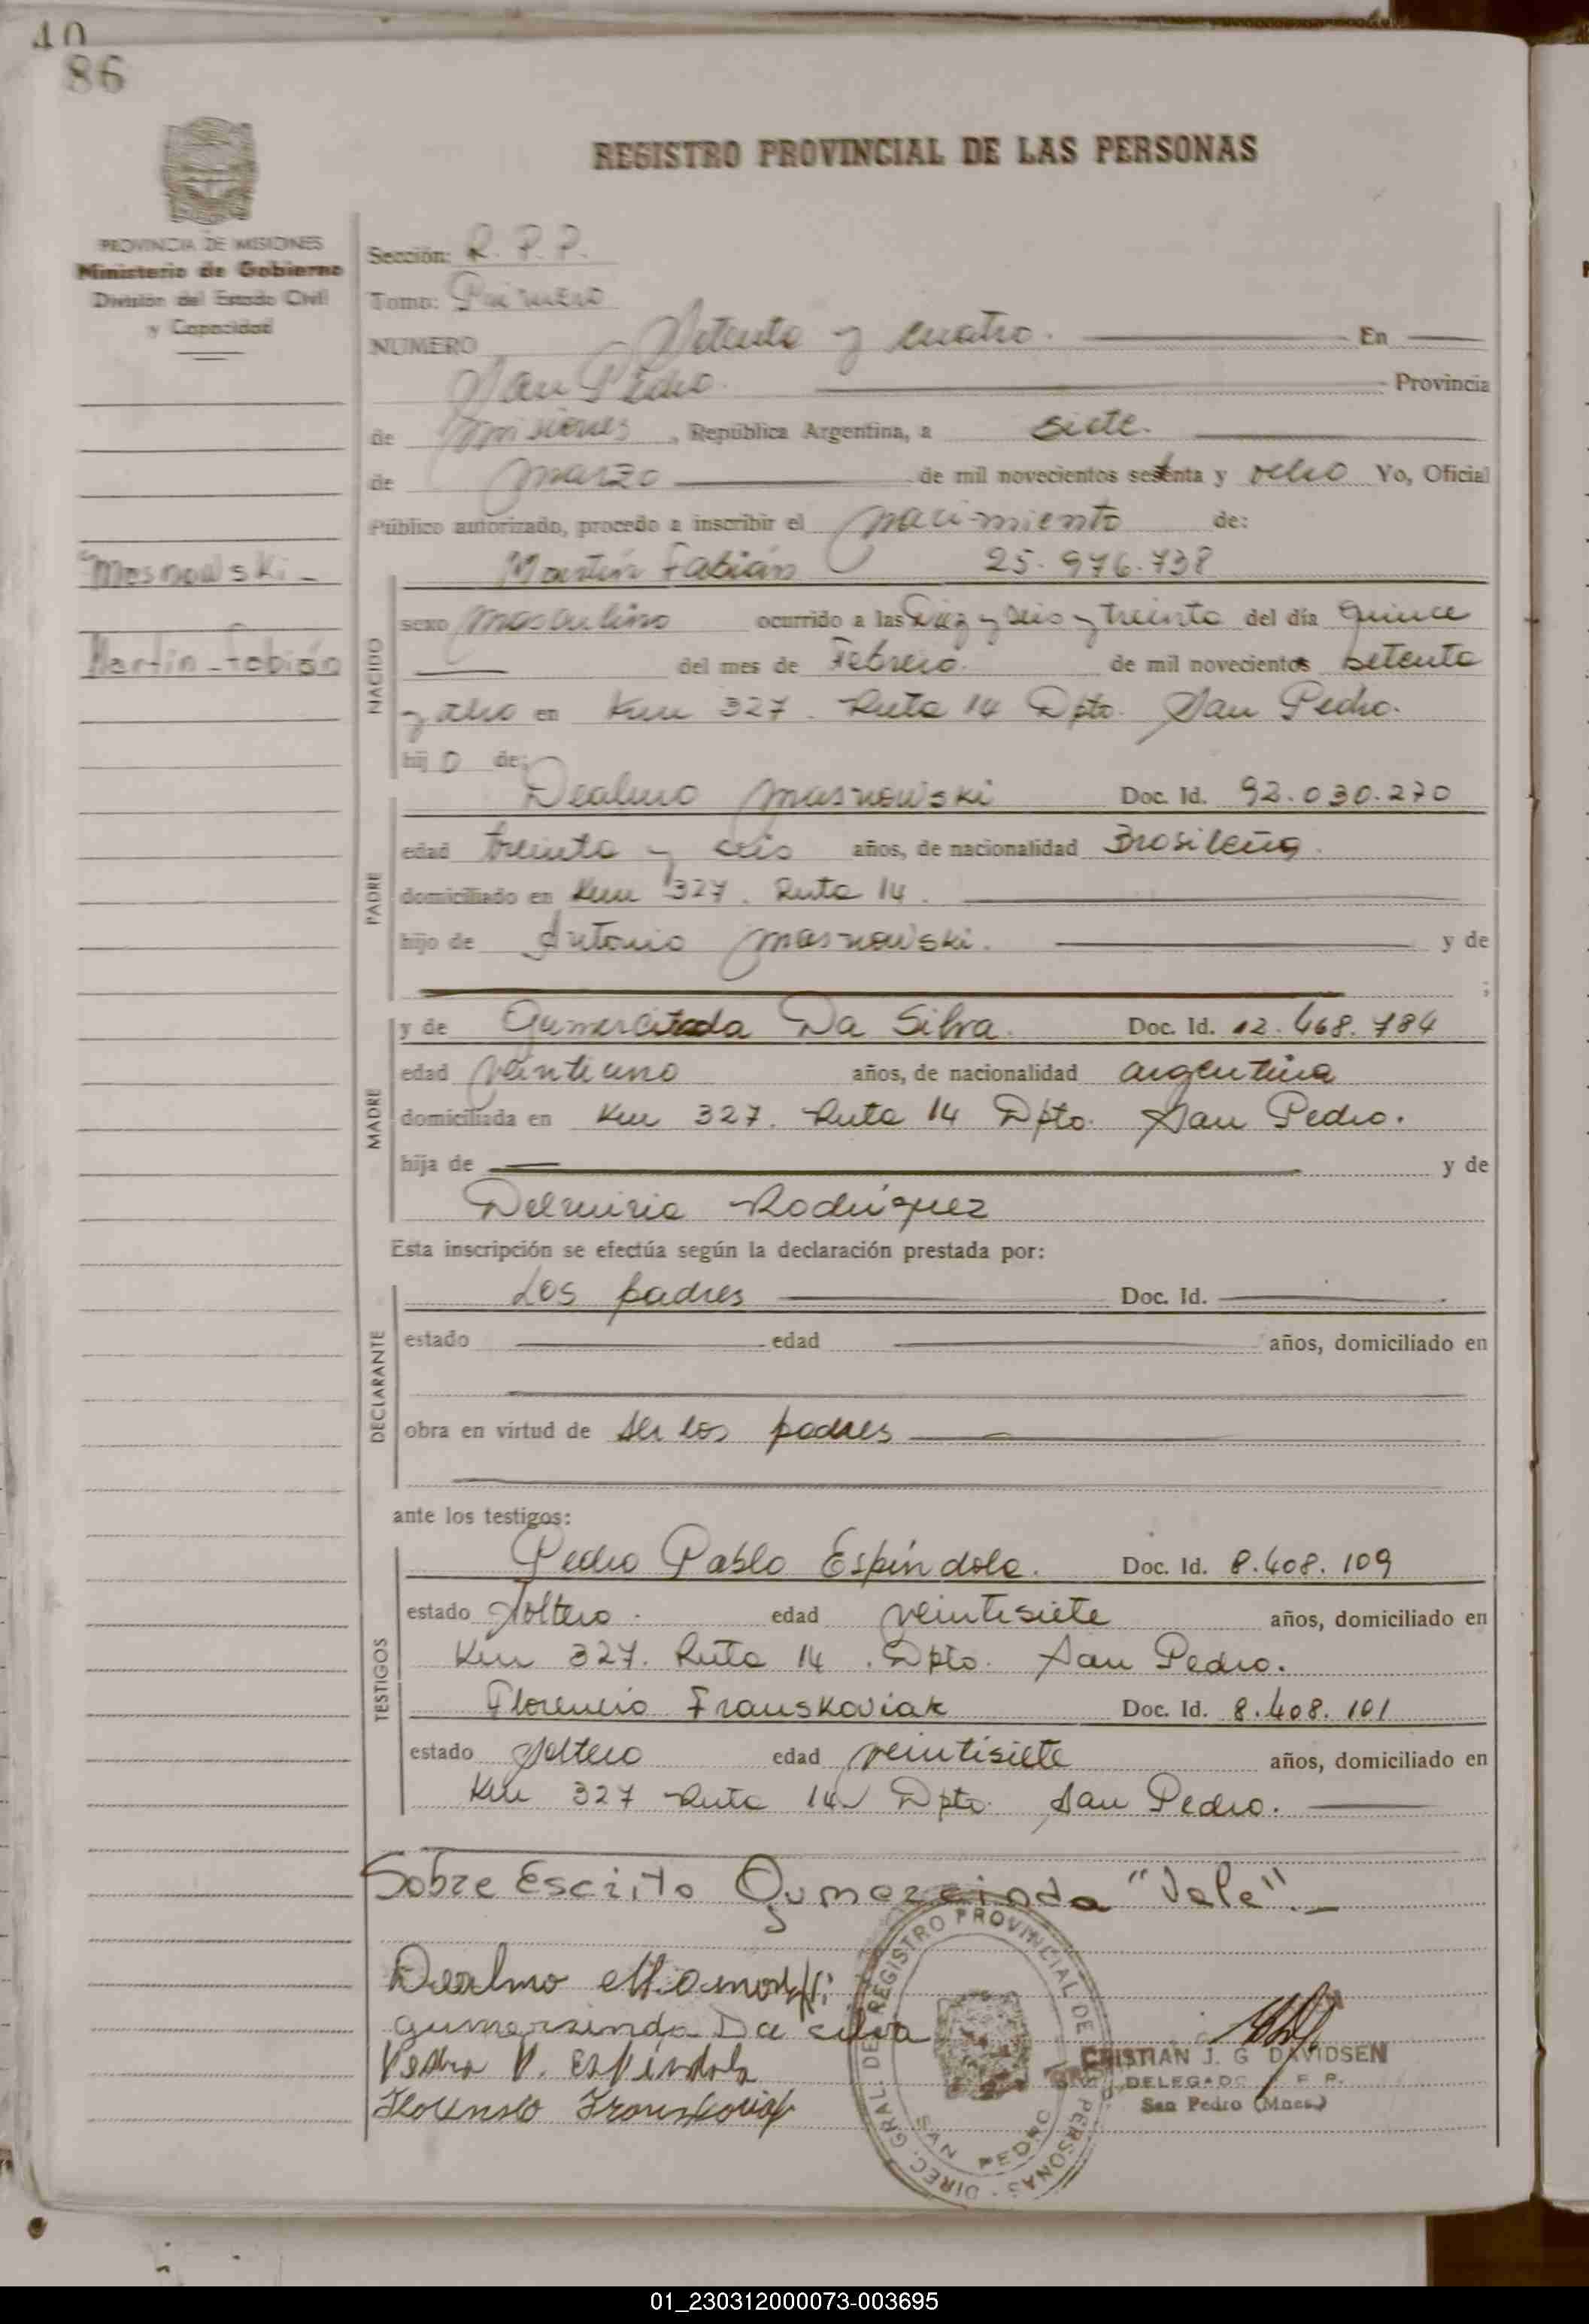 40
86
REGISTRO PROVINCIAL DE LAS PERSONAS
PROVINCIA DE MISIONES
Ministerio de Gobierno
División del Estado Civil
y Capacidad
Sección: R. P. P.
Tomo: Primero
NUMERO Setenta y cuatro. En
San Pedro. Provincia
de Misiones, República Argentina, a siete.
de marzo de mil novecientos setenta y ocho Yo, Oficial
Público autorizado, procedo a inscribir el nacimiento de:
Masnowski -
Martin - Fabián
NACIDO
Martín Fabián 25.976.738
sexo masculino ocurrido a las Diez y seis y treinta del día quince
del mes de Febrero. de mil novecientos setenta
y ocho en Km 327. Ruta 14 Dpto. San Pedro.
hijo de:
PADRE
Dealmo Masnowski Doc. Id. 92.030.270
edad treinta y seis años, de nacionalidad Brasileña.
domiciliado en Km 327. Ruta 14.
hijo de Antonio Masnowski. y de
;
MADRE
y de Gumercinda Da Silva. Doc. Id. 12.468.784
edad veintiuno años, de nacionalidad argentina
domiciliada en Km 327. Ruta 14 Dpto. San Pedro.
hija de y de
Delmiria Rodríguez
Esta inscripción se efectúa según la declaración prestada por:
DECLARANTE
Los padres Doc. Id.
estado edad años, domiciliado en
obra en virtud de ser los padres
ante los testigos:
TESTIGOS
Pedro Pablo Espíndola. Doc. Id. 8.408.109
estado Soltero. edad veintisiete años, domiciliado en
Km 327. Ruta 14. Dpto. San Pedro.
Florencio Franskoviak Doc. Id. 8.408.101
estado Soltero edad veintisiete años, domiciliado en
Km 327 Ruta 14 Dpto. San Pedro.
Sobre Escrito Gumercinda "Vale" -
Dealmo
gumersinda Da cilva
Pedro P. Espindola
Florensio Franskoviak
DIREC. GRAL. DE REGISTRO PROVINCIAL DE PERSONAS
SAN PEDRO
CRISTIAN J. G DAVIDSEN
DELEGADO
San Pedro (Mnes.)
01_230312000073-003695